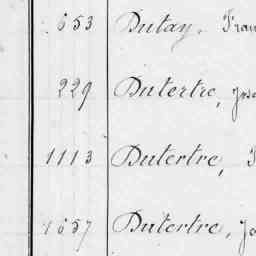 653 Dutay, Fran
229 Dutertre, José
1113 Dutertre,
1657 Dutertre, Jo